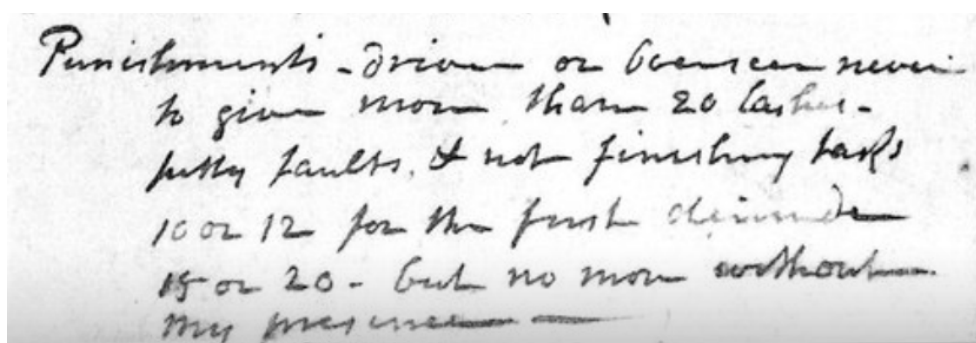 Punishments - driver or Overseer never
to give more than 20 lashes -
petty faults, & not finishing tasks
10 or 12 for the first
15 or 20 - but no more without
my presence —